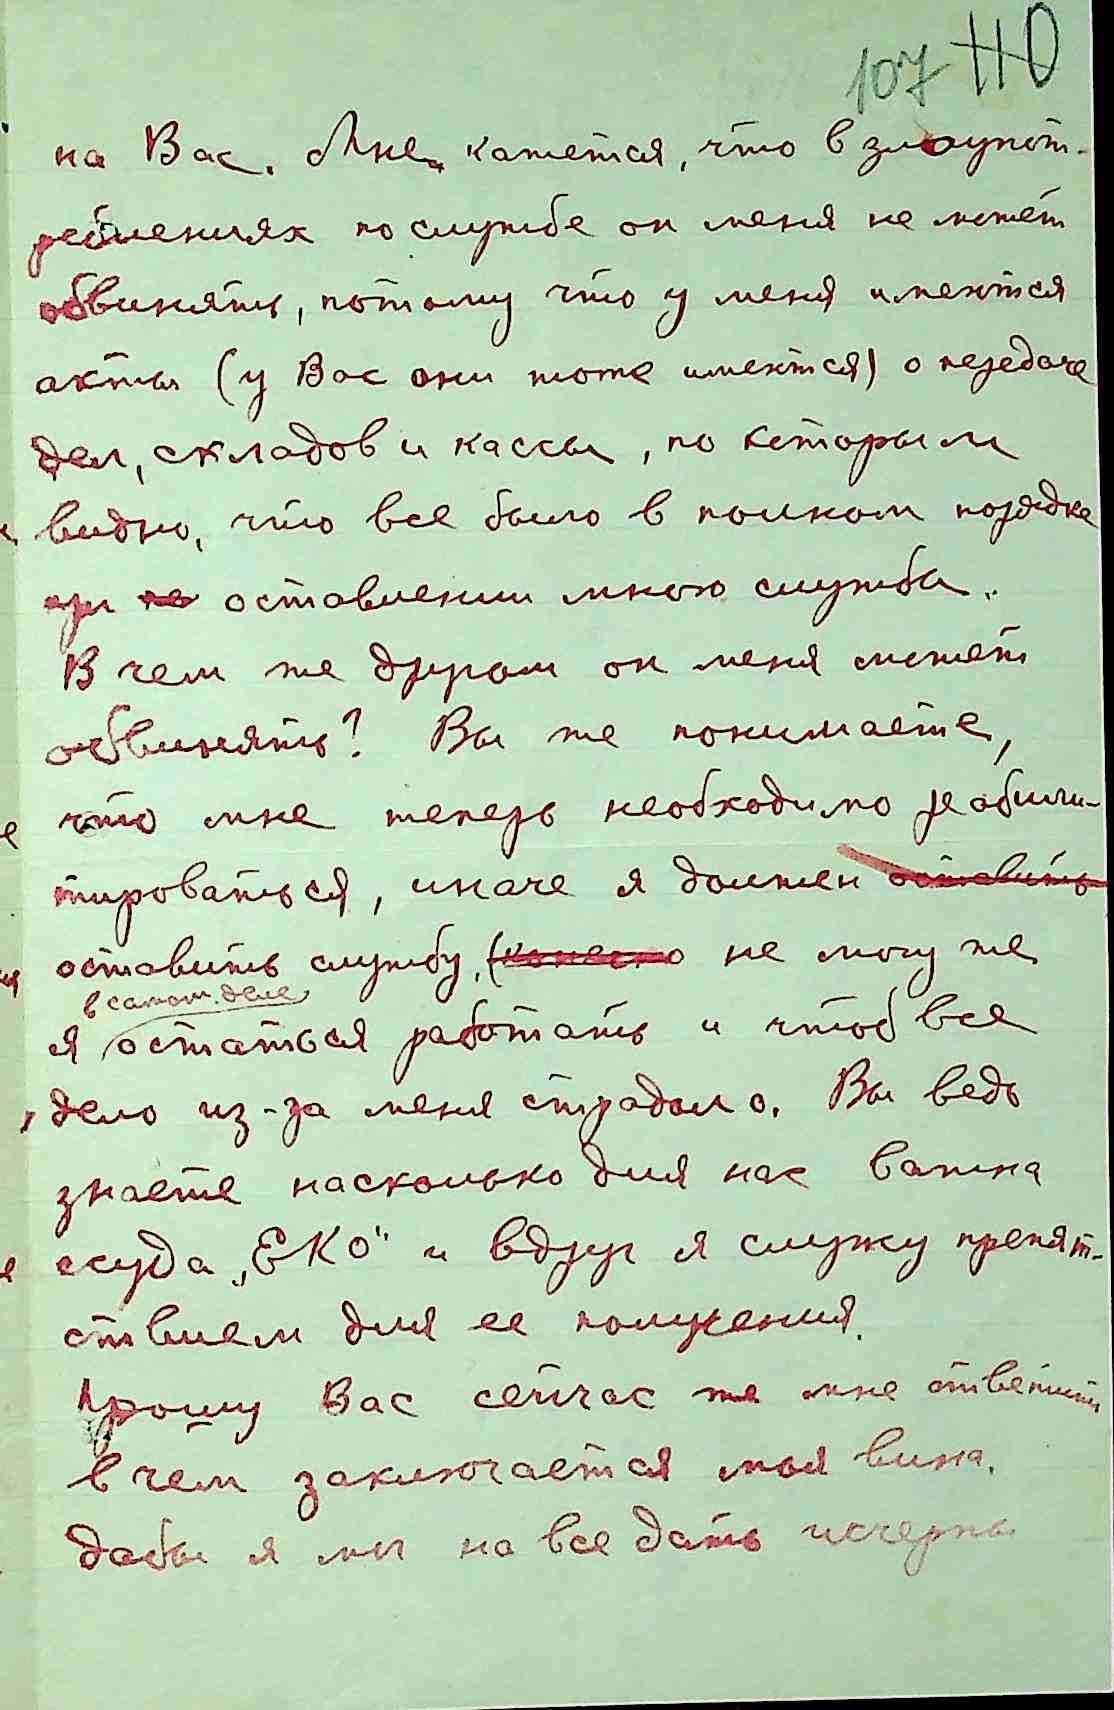 107 110
на Вас. Мне кажется, что в злоупот-
реблениях по службе он меня не может
обвинять, потому что у меня имеются
акты (у Вас они тоже имеются) о передаче
дел, складов и кассы, по которым
видно, что все было в полном порядке
при оставлении мною службы.
В чем же другом он меня может
обвинять? Вы же понимаете,
что мне теперь необходимо реабили-
тироваться, иначе я должен оставить
оставить службу, (конечно не могу же
в самом деле
я остаться работать и чтоб все
дело из-за меня страдало. Вы ведь
знаете насколько для нас важна
ссуда „ЕКО" и вдруг я служу препят-
ствием для ее получения.
Прошу Вас сейчас же мне ответить
в чем заключается моя вина,
дабы я мог на все дать исчерпы